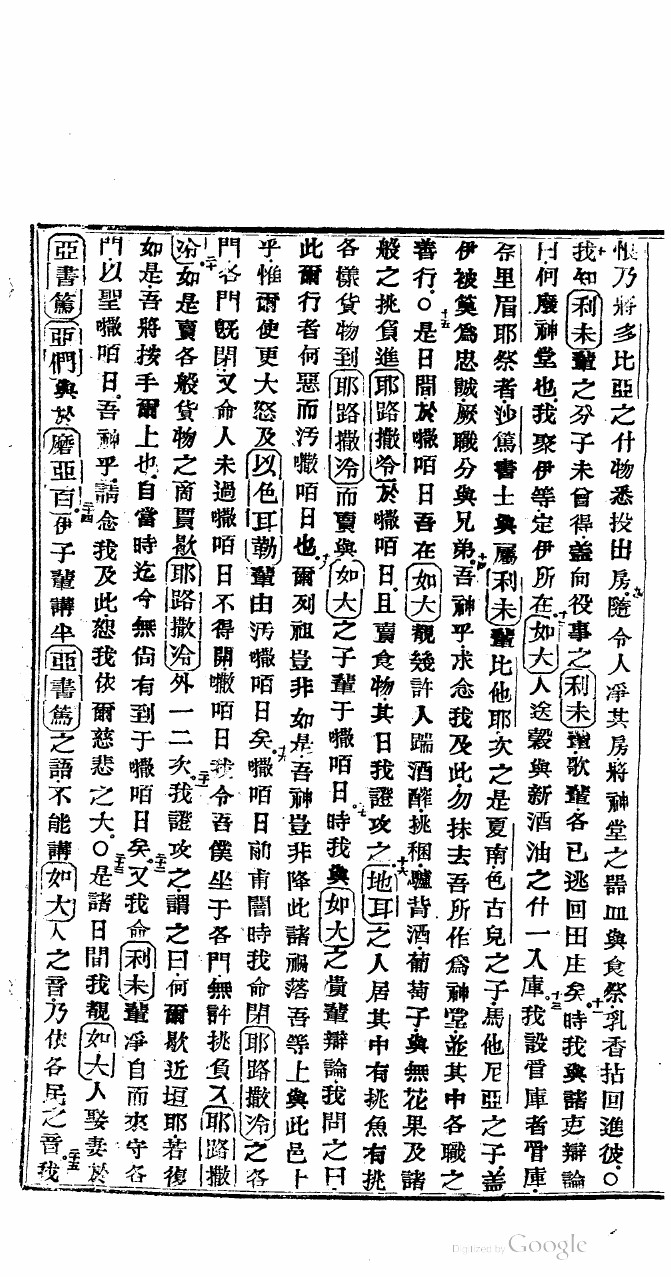 恨乃將多比亞之什物悉投出房九隨令人凈其房將神堂之器皿與食祭乳香拈回進彼○
十我知利未輩之分子未曾得蓋向役事之利未輩歌輩各已逃回田庄矣十一時我與諸吏辯論
曰何廢神堂也我聚伊等定伊所在十二如大人送穀與新酒油之什一入庫十三我設管庫者管庫
祭里眉耶祭者沙篤書士與屬利未輩比他耶次之是夏南色古兒之子馬他尼亞之子蓋
伊被筭為忠賊厥職分與兄弟十四吾神乎求念我及此勿抹去吾所作為神堂並其中各職之
善行○十五是日間於𡂡咟日吾在如大覩幾許人踹酒醡挑稇驢背酒葡萄子與無花果及諸
般之挑負進耶路撒冷於𡂡咟日且賣食物其日我證攻之十六地耳之人居其中有挑魚有挑
各樣貨物到耶路撒冷而賣與如大之子輩于𡂡咟日十七時我與如大之貴輩辯論我問之曰
此爾行者何惡而汚𡂡咟日也十八爾列祖豈非如是吾神豈非降此諸禍落吾等上與此邑上
乎惟爾使更大怒及以色耳勒輩由汚𡂡咟日矣十九𡂡咟日前甫闇時我命閉耶路撒冷之各
門各門旣閉又命人未過𡂡咟日不得開𡂡咟日我令吾僕坐于各門無許挑負入耶路撒
冷二十如是賣各般貨物之商賈歇耶路撒冷外一二次二十一我證攻之謂之曰何爾歇近垣耶若復
如是吾將按手爾上也自當時迄今無尙有到于𡂡咟日矣二十二又我命利未輩凈自而來守各
門以聖𡂡咟日吾神乎請念我及此恕我依爾慈悲之大○二十三是諸日間我覩如大人娶妻於
亞書篤亞們與於磨亞百二十四伊子輩講半亞書篤之語不能講如大人之音乃依各民之音二十五我
Digitized by Google